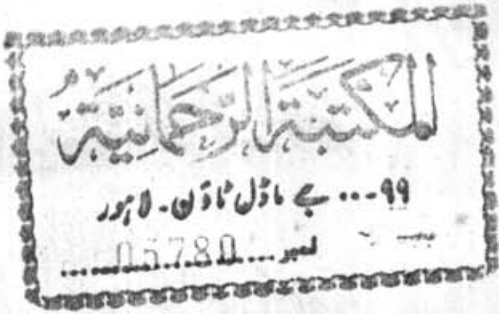 المكتبة الرحمانية
۹۹-... جے ماڈل ٹاؤن - لاہور
نمبر ...05780...